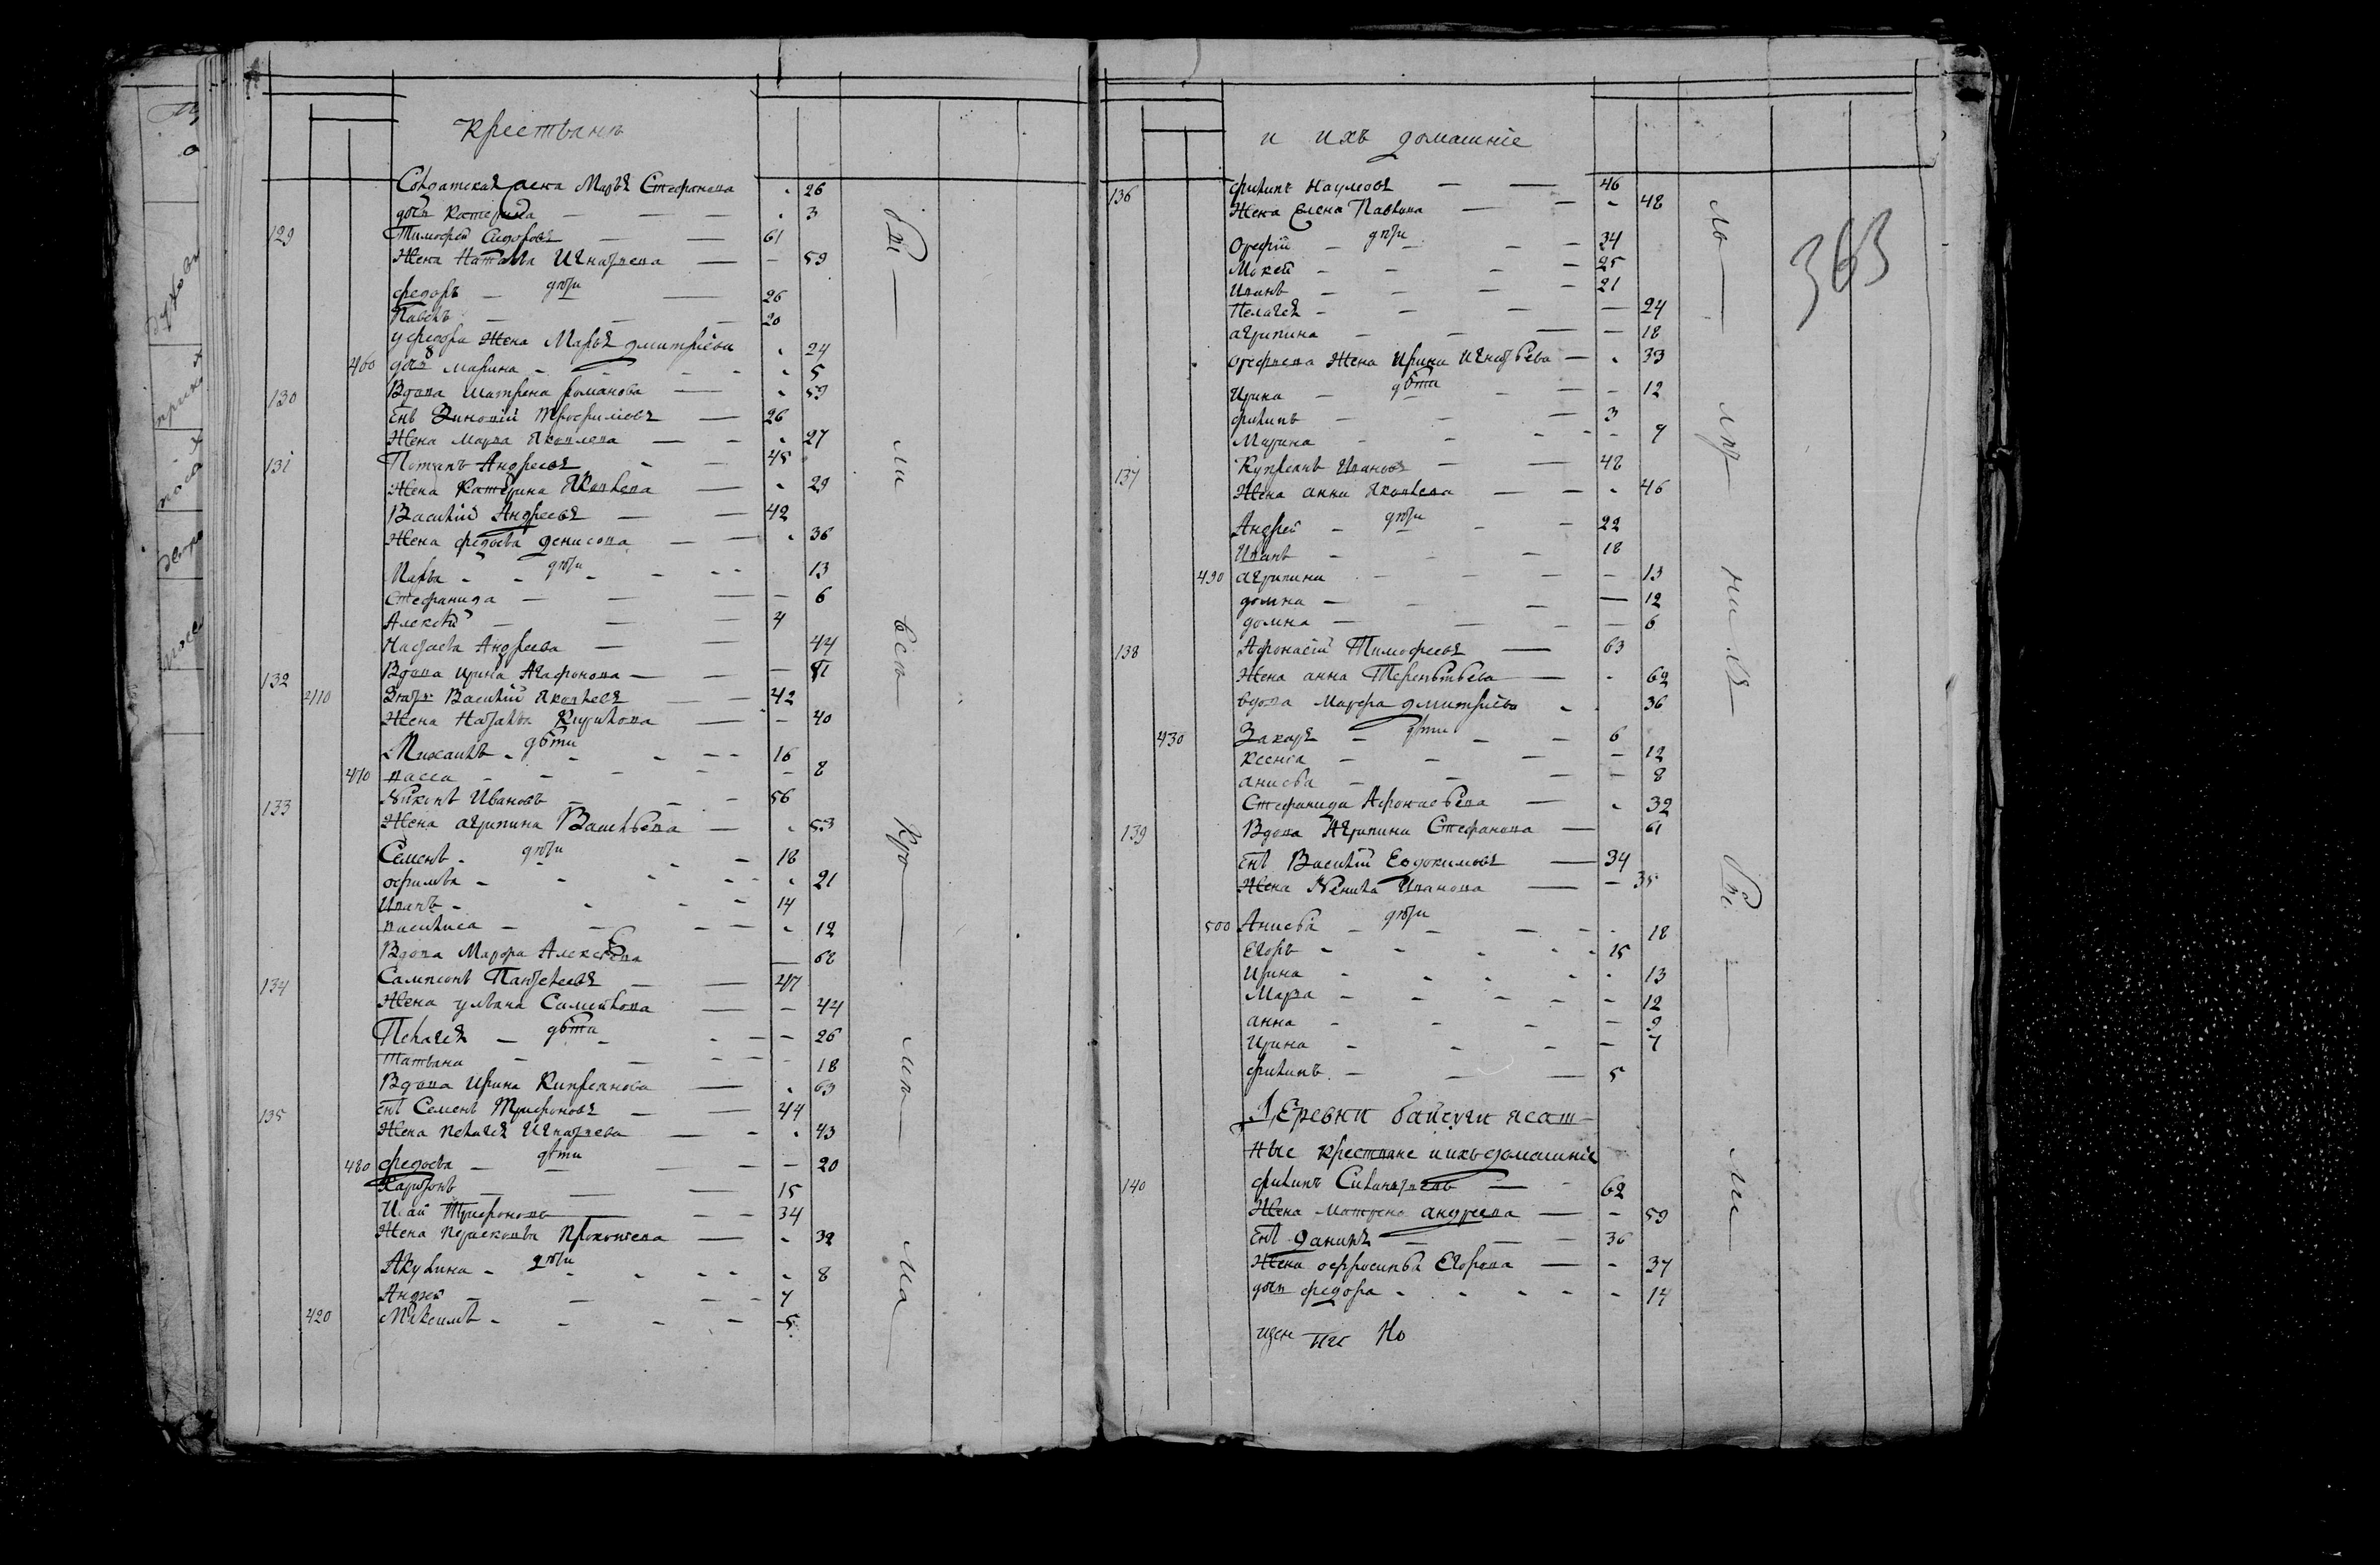 крестьянъ
Солдатская жена Марья Стефанова - 26
дочь Катерина - 3
129 Тимофей Сидоровъ 61
Жена Наталья Игнатьева - 59
дѣти
Федоръ 26
Павелъ 20
у федора Жена Марья дмитріева - 24
460 дочь марина - 5
130 Вдова матрена романова - 59
Снъ Зиновій Трофимовъ 26
Жена марѳа Яковлева - 27
131 Потапъ Андреевъ 45
Жена Катерина Яковлева - 29
Василій Андреевъ 42
Жена федосья денисова - 36
дѣти
Марья 13
Стефанида - 6
Алексей 4
Настасья Андреева 44
132 Вдова ирина Агафонова
410 Зять Василій Яковлевъ 42
Жена Наталья Кирилова - 40
дѣти
Михаилъ 16
470 васса - 8
133 Никонъ Ивановъ 56
Жена агрипина Васильева - 53
дѣти
Семенъ 18
офимья - 21
Иванъ 14
василиса - 12
Вдова Марфа Алексѣева - 68
134 Сампсонъ Пантелеевъ 47
Жена ульяна Самойлова - 44
дѣти
Пелагея - 26
Татьяна - 18
Вдова Ирина Киприянова - 63
135 Снъ Семенъ Трифоновъ 44
Жена пелагея Игнатьева - 43
дѣти
480 федосья - 20
Харитонъ 15
Исай Трифоновъ 34
Жена Парасковья Прокопьева - 32
дѣти
Акулина - 8
Андрей 7
420 Максимъ 5
и ихъ домашніе
136 филипъ Наумовъ 46
Жена Елена Павлова - 48
дѣти
Орефій 34
Мокей 25
Иванъ 21
Пелагея - 24
агрипина - 18
орефьева Жена Ирина Игнатьева - 33
дѣти
Ирина - 12
филипъ 3
Марина -
137 Куприянъ Ивановъ 48
Жена анна Яковлева - 46
дѣти
Андрей 22
Иванъ 18
490 агрипина - 13
домна - 12
домна - 6
138 Афонасій Тимофеевъ 63
Жена анна Терентьева - 62
вдова марфа дмитріева - 36
дѣти
430 Захаръ 6
ксенія - 12
анисья - 8
Стефанида Афонасьева - 32
139 Вдова Агрипина Стефанова 61
Снъ Василій Евдокимовъ 34
Жена Ненила Иванова - 35
дѣти
500 Анисья - 18
Егоръ 15
Ирина - 13
Марѳа - 12
анна - 9
Ирина - 7
филипъ 5
Деревни байсуги ясаш-
ные крестьяне и ихъ домашніе
140 филипъ 62
Жена матрена андреева - 59
Снъ данилъ 36
Жена офросинья Егорова - 37
дочь федора - 14
363